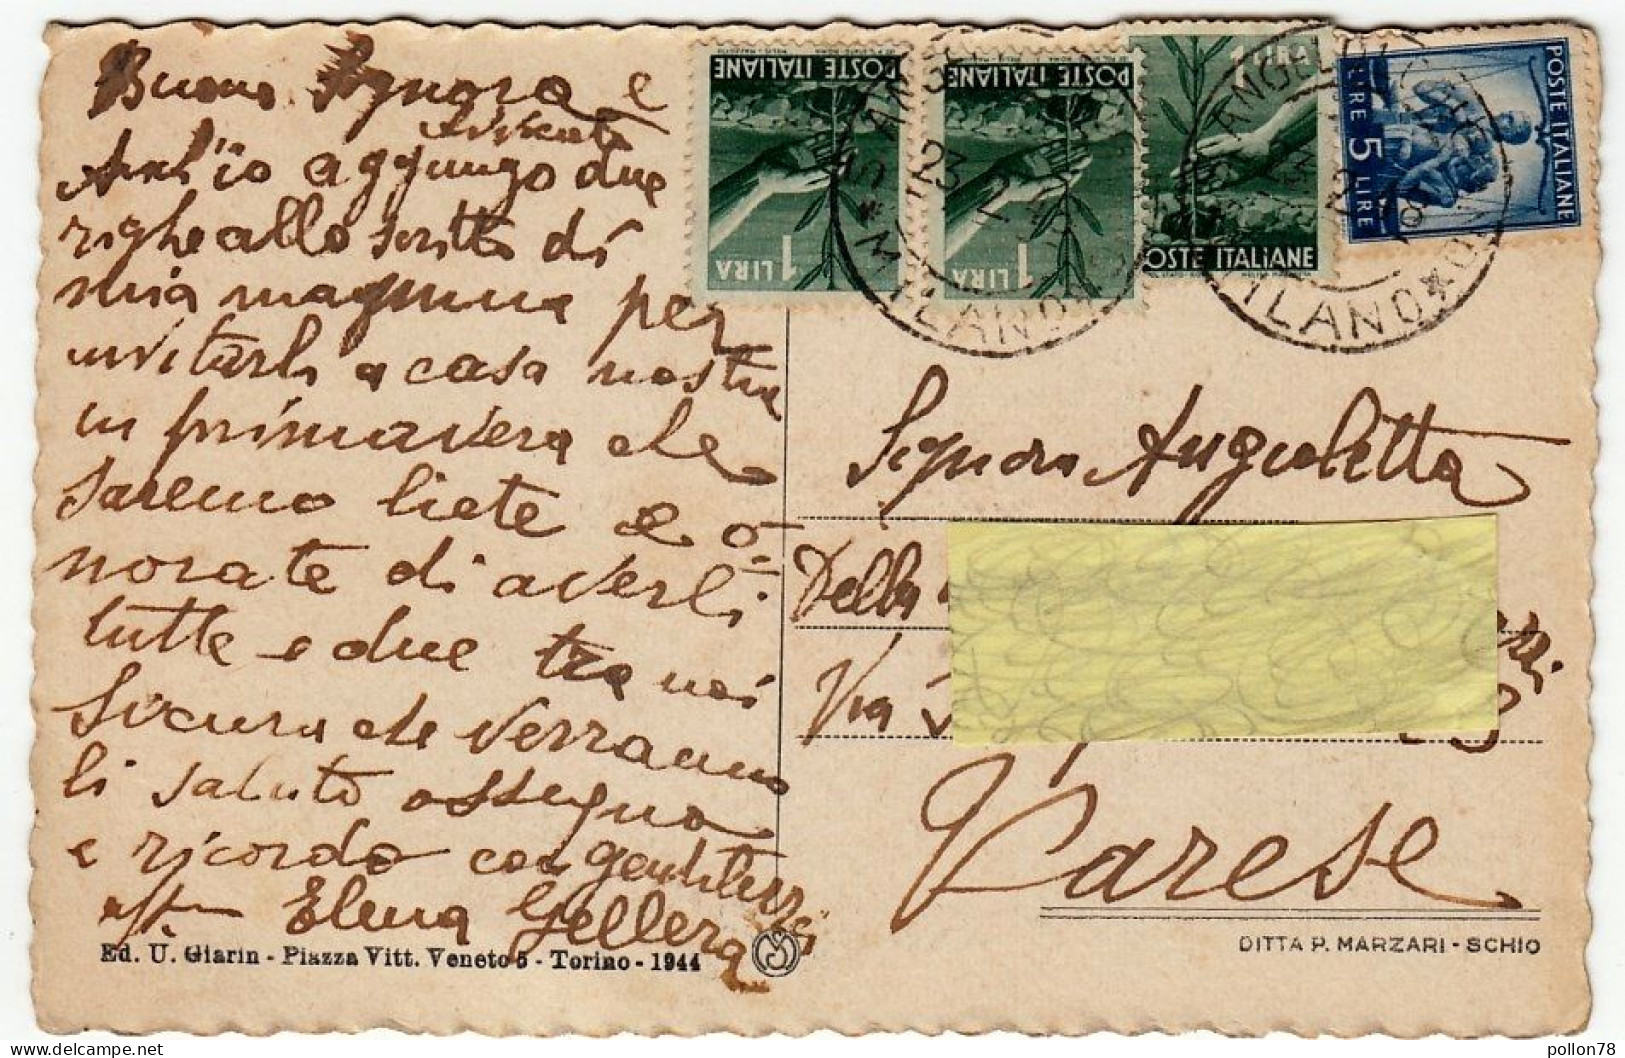 Buona Signora e
Avvocato
Anch'io aggiungo due
righe allo scritto di
mia mamma per
invitarli a casa nostra
in primavera che
saremo liete e o-
norate di averli
tutte e due tra noi
Sicura che verranno
li saluto ossequio
e ricordo con gentilezza
aff. Elena Gellera
Ed. U. Giarin - Piazza Vitt. Veneto 5 - Torino - 1944
POSTE ITALIANE
1 LIRA
POSTE ITALIANE
1 LIRA
1 LIRA
POSTE ITALIANE
POSTE ITALIANE
LIRE 5 LIRE
MILANO
MILANO
Signora Angioletta
Della
Via
Varese
DITTA P. MARZARI - SCHIO
pollon78
delcampe.net